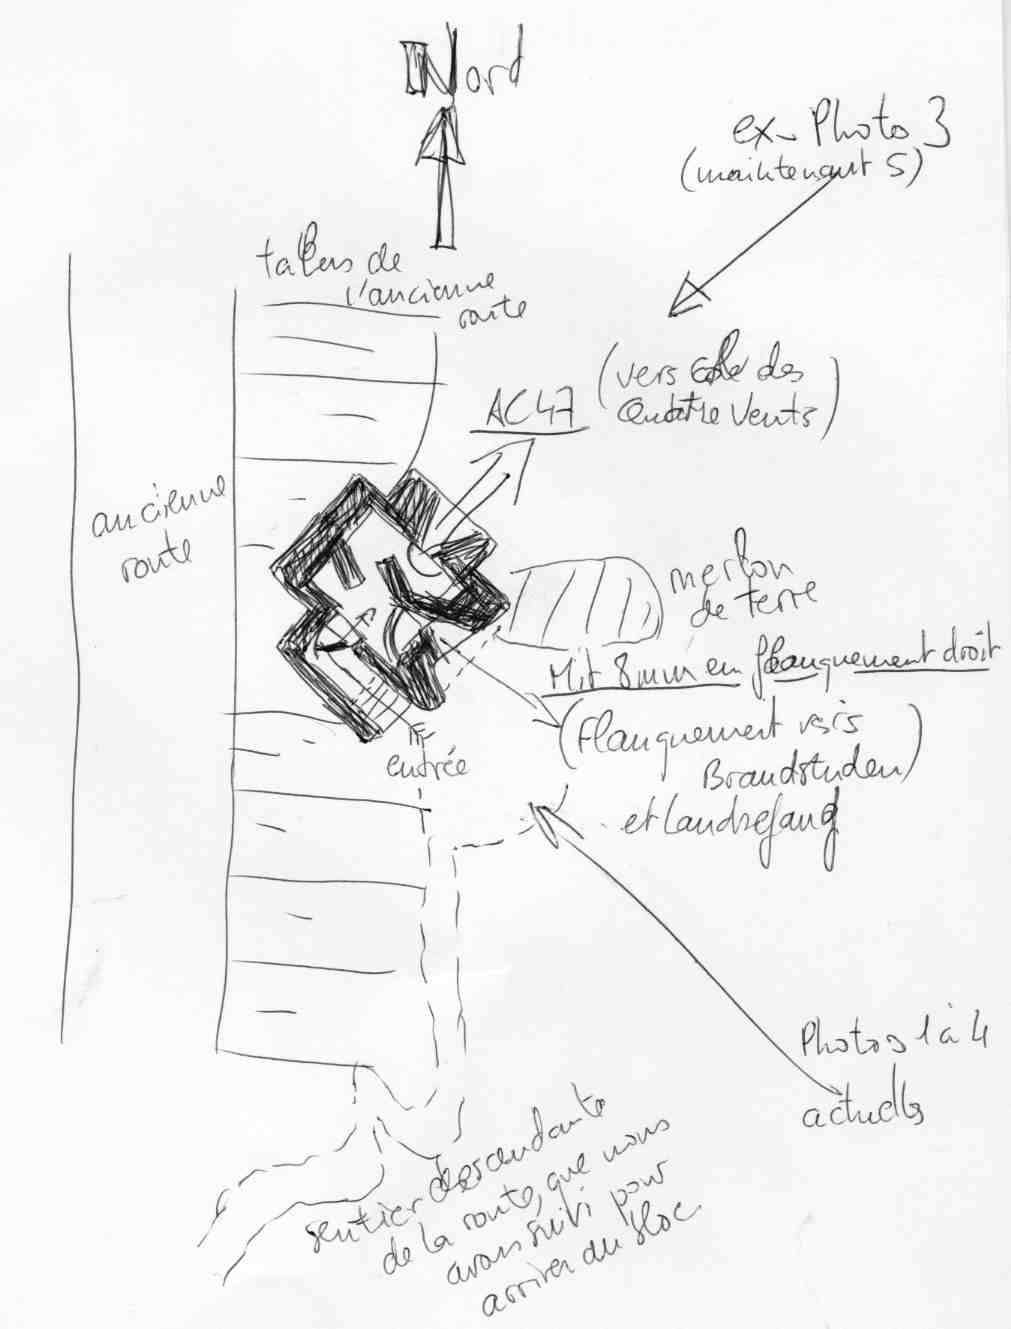 Nord
ex-Photo 3
(maintenant 5)
talus de
l'ancienne
route
AC47
(vers côte des
Quatre Vents)
ancienne
route
merlon
de terre
Mit 8mm en flanquement droit
(flanquement vers
Brandstuden)
et Landrefang
entrée
Photos 1 à 4
actuelles
sentier descendante
de la route, que nous
avons suivi pour
arriver au bloc